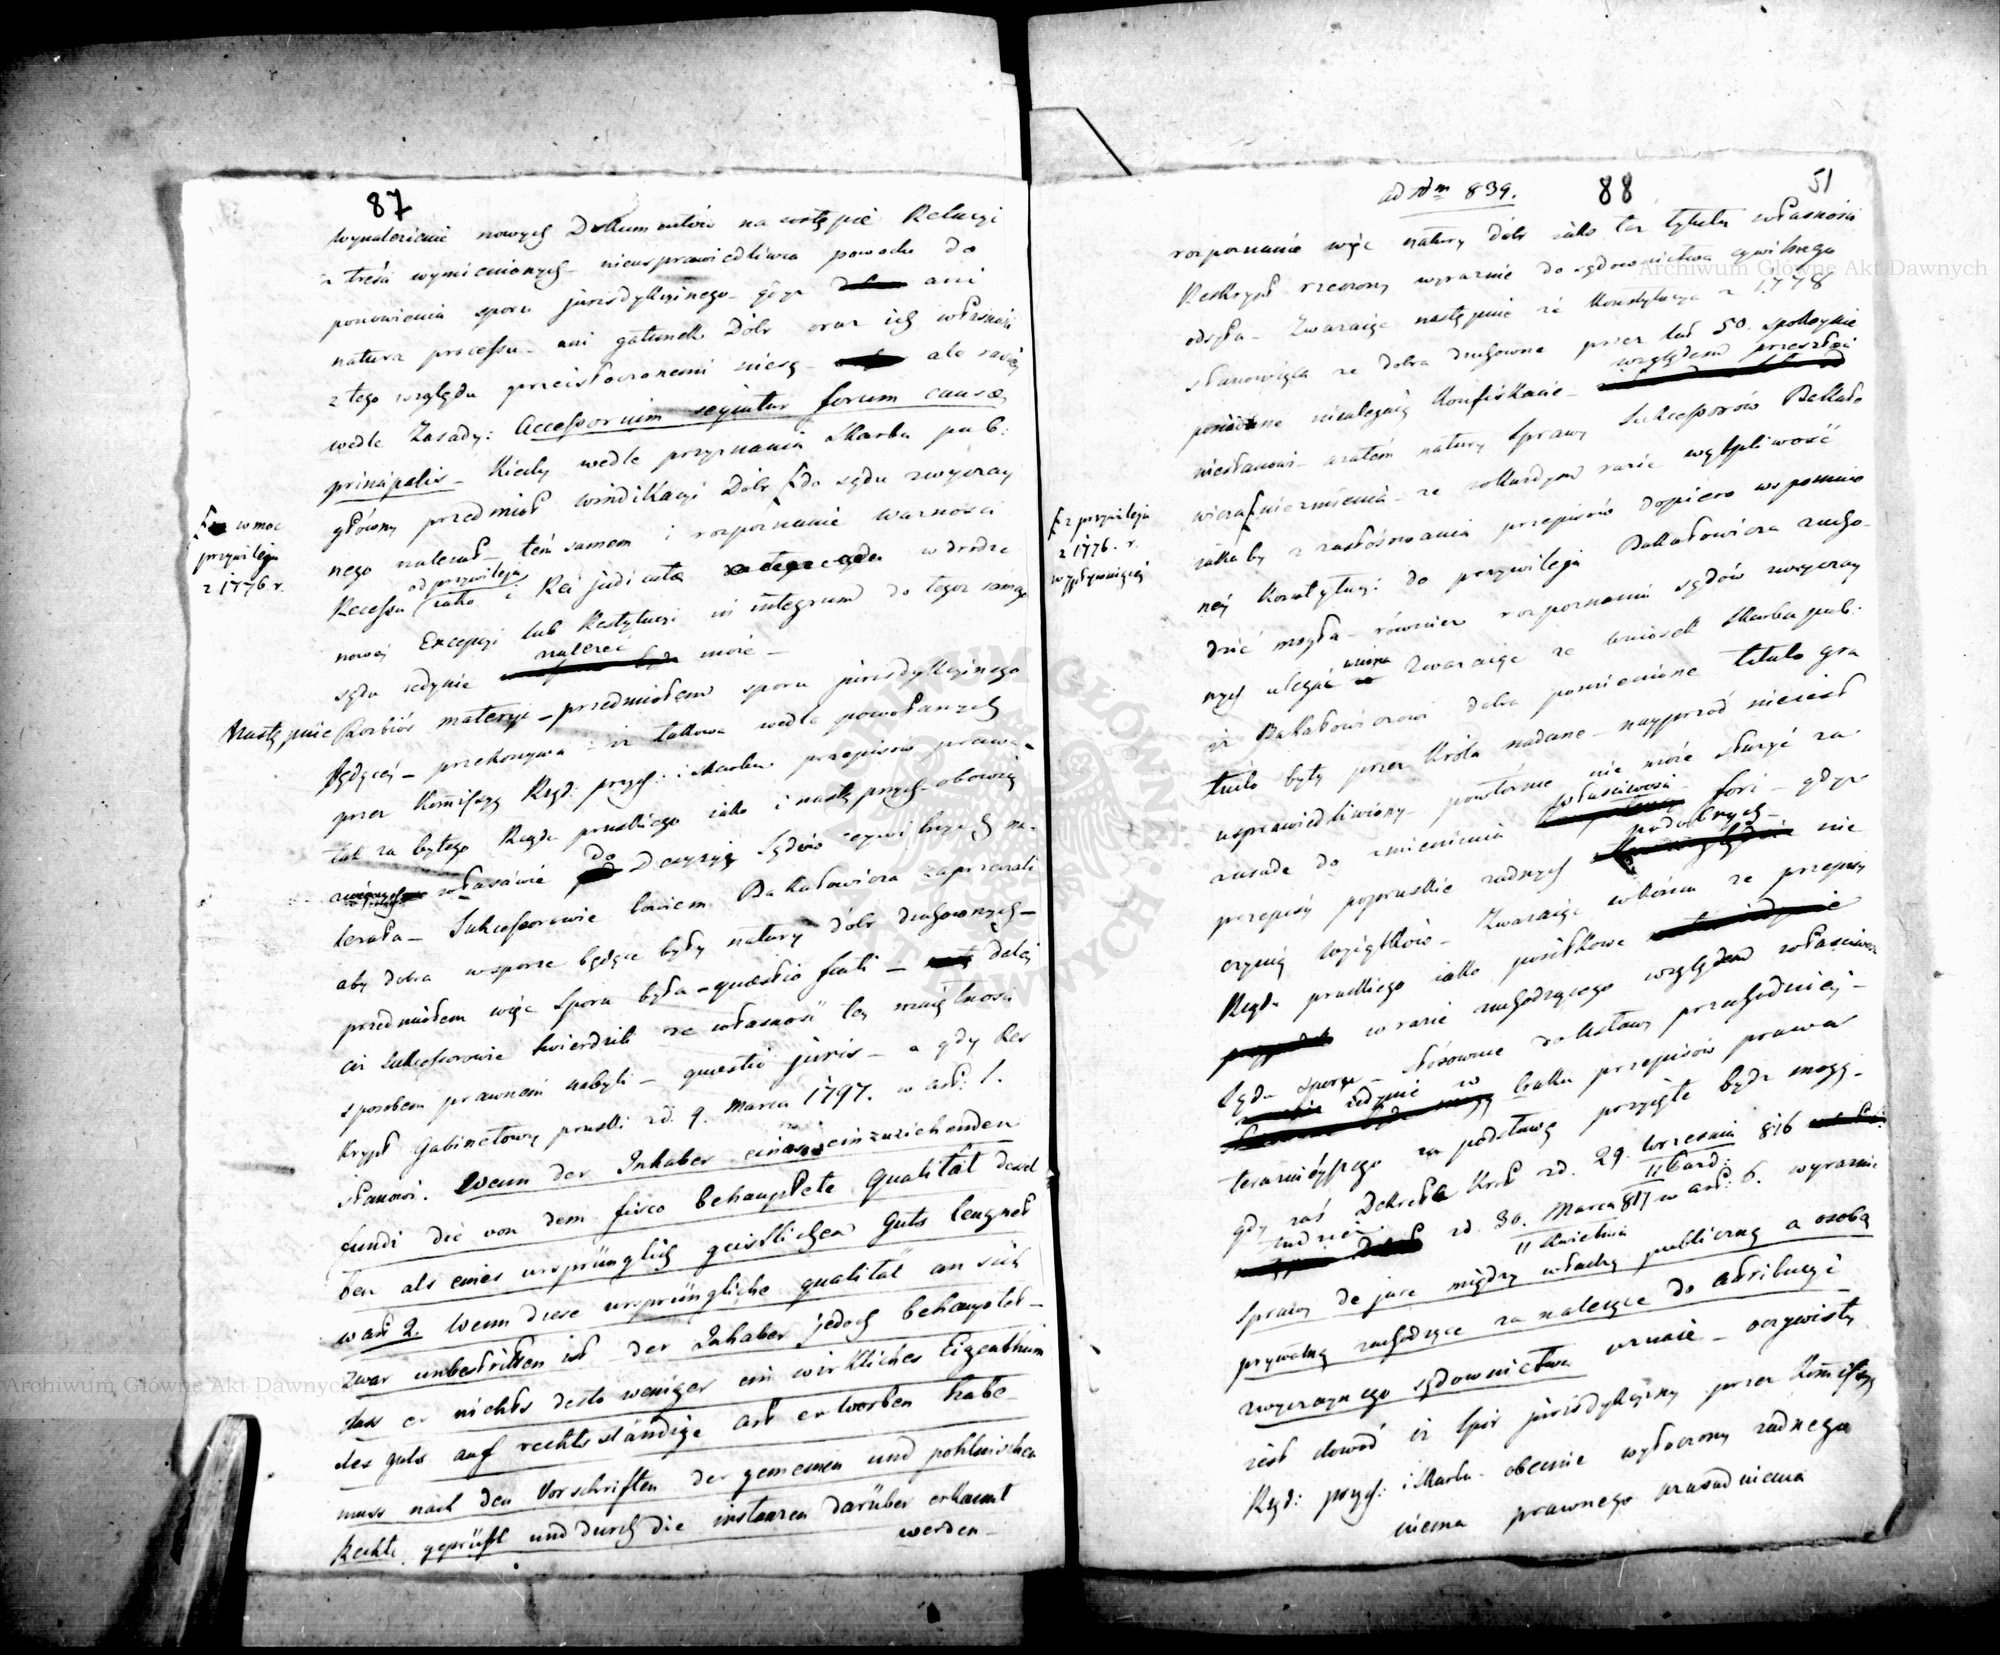 87
wynalezienie nowych Dokumentów na wstępie Relacyi
z treści wymienionych – nieusprawiedliwia powodu do
ponowienia sporu jurisdykcyinego – gdyż ani
natura processu – ani gatunek Dóbr oraz ich własności
z tego względu przeistoczonemi nie są – ale raczej
wedle Zasady: Accessorium seqiutur forum causæ
principalis – Kiedy wedle przyznania Skarbu pub:
główny przedmiot windikacyi Dóbr do sądu zwyczay
w moc
przywileju
z 1776. r.
nego należał – tém samem i rozpoznanie ważności
od przywileju
Recessu jako i Rei judicatæ w drodze
nowej Excepcyi lub Restytucyi in integrum do tegoż samego
sądu jedynie należeć może –
Następnie Rozbiór materyi – przedmiotem sporu jurisdykcyinego
będącej – przekonywa: iż takowa wedle powołanych
przez Kommissyą Rząd: przych: i skarbu przepisów prawa –
tak za byłego Rządu pruskiego jako i następnych obowią
właśćiwie do Decyzyi Sądów cywilnych na-
leżała – Sukcessorowie bowiem Bakałowicza zaprzeczali
aby dobra w sporze będące były natury dóbr duchownych –
przedmiotem więc Sporu była – quæstio facti – daléj
ciż Sukcessorowie twierdzili że własność tej majętności
sposobem prawnem nabyli – quæstio juris – a gdy Res
krypt Gabinetowy pruski zd. 9. Marca 1797. w art: 1.
stanowi. Wenn der Inhaber eines einzuziehenden
fundi die von dem fisco behauptete Qualität dessel
ben als eines ursprünglich geistlichen Guts leugnet
w art 2. Wenn diese ursprüngliche qualität an sich
zwar unbestritten ist – der Inhaber jedoch behauptet –
dass er nichts desto weniger ein wirkliches Eigenthum
des guts auf rechtsständige art erworben habe –
muss nach den Vorschriften der gemeinen und pohlnischen
Rechte geprüft und durch die instanzen darüber erkannt
werden –
ad Nm 839.
88
51
rozpoznanie więc natury dóbr jako téż tytułu własności
Reskrypt rzeczony wyraźnie do sądownictwa cywilnego
odsyła – Zważaiąc następnie że Konstytucya z 1778
stanowiąca że dobra duchowne przez lat 50. spokoynie
posiadane nieulegaią Konfiskacie – względem przeszłości
niestanowi – a zatém natury Sprawy Sukcessorów Bakało
wicza niezmienia – że w każdym razie wątpliwość
z przywileju
z 1776. r.
wypływaiącej
jakaby z zastósowania przepisów dopiero wspomnio
néy Konstytucyi do przywileju Bakałowicza zacho-
dzić mogła – również rozpoznaniu sądów zwyczay
nych ulegać winna Zważaiąc że wniosek Skarbu pub:
iż Bakałowiczowi dobra pomienione titulo gra
tuito były przez Króla nadane – nayprzód nie jest
usprawiedliwiony – powtórnie nie może służyć za
zasadę do zmienienia właściwości fori – gdyż
przepisy popruskie żadnych podobnych –
nie
czynią wyjątków – Zważaiąc wkońcu że przepisy
Rządu pruskiego jako posiłkowe
w razie zachodzącego względem właściwości
Sądu sporu – stosownie do Ustawy przechodniej –
jedynie w braku przepisów prawa
teraźnieyszego za podstawę przyięte bydź mogą –
gdy zaś Dekreta Król zd. 29. Września 816
11 Pazd:
tudzież zd. 30. Marca 817 w art: 6. wyraźnie
11 Kwietnia
Sprawy de jure między władzą publiczną a osobą
prywatną zachodzące za należące do attribucyi
zwyczaynego sądownictwa uznaie – oczywisty
jest dowód iż Spór jurisdykcyiny przez Kommissyą
Rząd: przych: i Skarbu obecnie wytoczony żadnego
niema prawnego uzasadnienia
Archiwum Główne Akt Dawnych
Archiwum Główne Akt Dawnych
ARCHIWUM GŁÓWNE AKT DAWNYCH